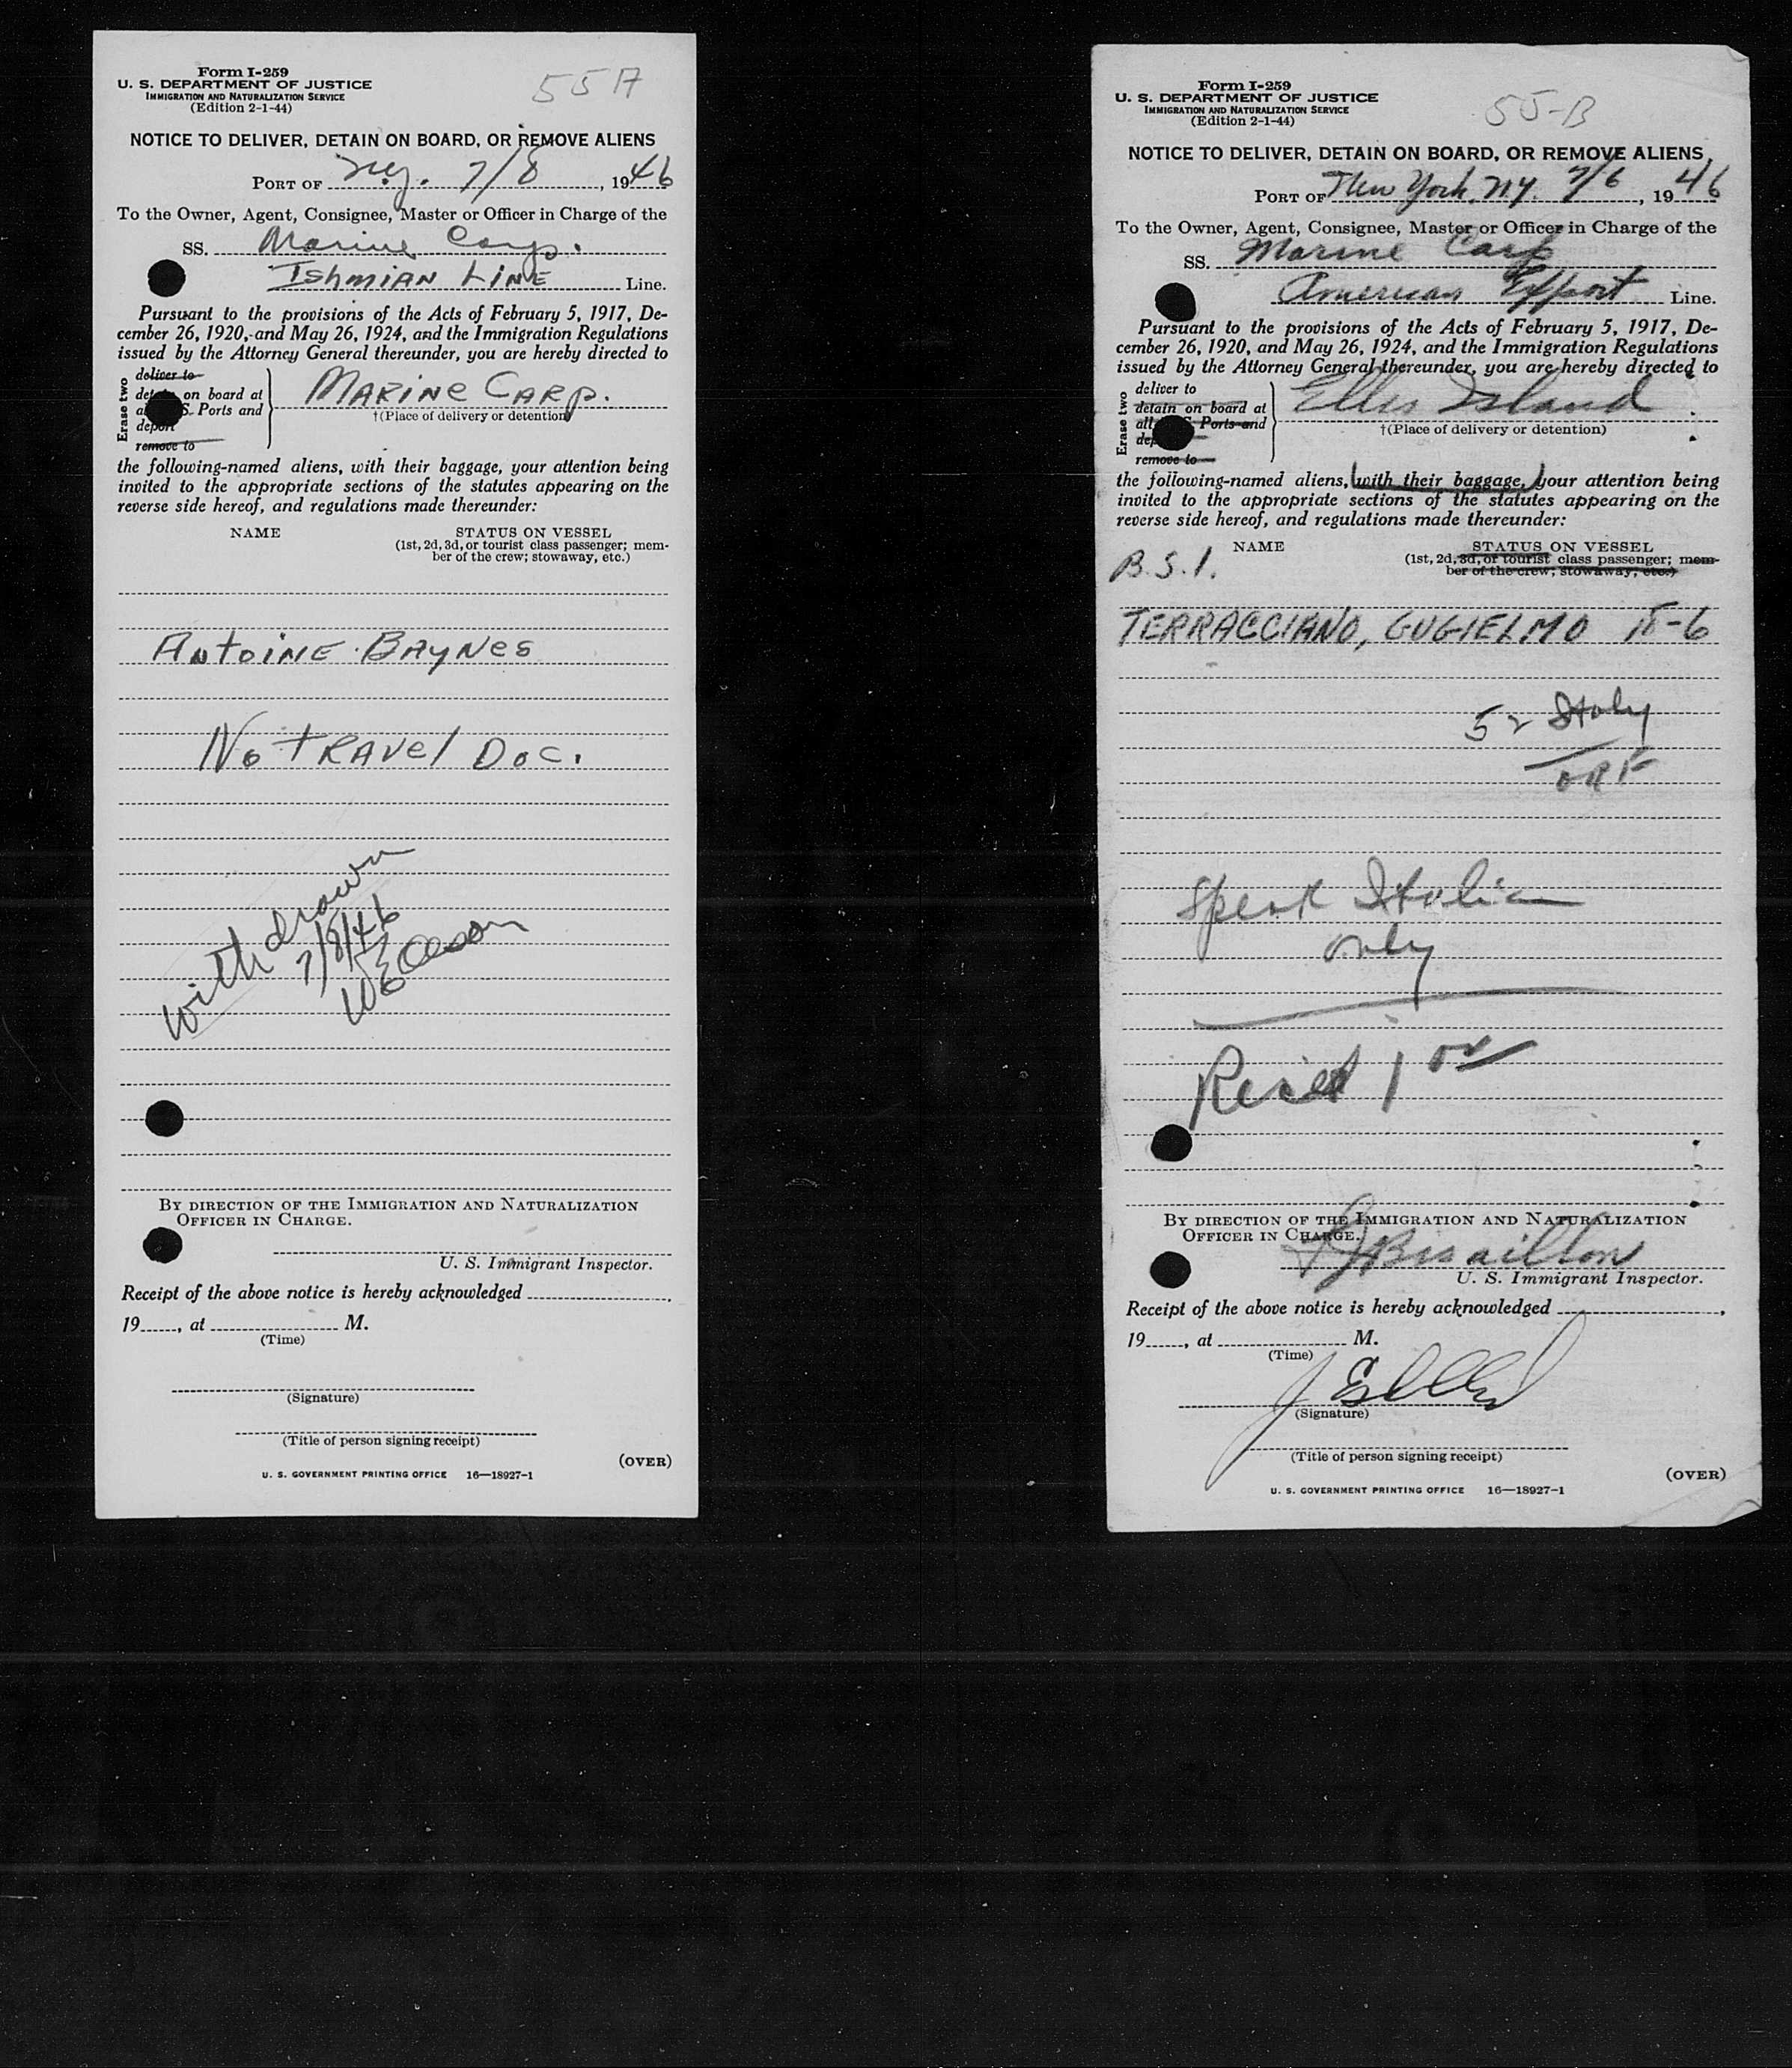 Form I-259
U. S. DEPARTMENT OF JUSTICE
IMMIGRATION AND NATURALIZATION SERVICE
(Edition 2-1-44)
55A
NOTICE TO DELIVER, DETAIN ON BOARD, OR REMOVE ALIENS
PORT OF N.Y. 7/8, 1946
To the Owner, Agent, Consignee, Master or Officer in Charge of the
SS. Marine Carp.
Ishmian Line Line.
Pursuant to the provisions of the Acts of February 5, 1917, De-
cember 26, 1920, and May 26, 1924, and the Immigration Regulations
issued by the Attorney General thereunder, you are hereby directed to
Erase two
deliver to
on board at
S. Ports and
deport
remove to
Marine Carp.
†(Place of delivery or detention)
the following-named aliens, with their baggage, your attention being
invited to the appropriate sections of the statutes appearing on the
reverse side hereof, and regulations made thereunder:
NAME STATUS ON VESSEL
(1st, 2d, 3d, or tourist class passenger; mem-
ber of the crew; stowaway, etc.)
Antoine Baynes
No travel Doc.
withdrawn
7/8/46
BY DIRECTION OF THE IMMIGRATION AND NATURALIZATION
OFFICER IN CHARGE.
U. S. Immigrant Inspector.
Receipt of the above notice is hereby acknowledged
19, at M.
(Time)
(Signature)
(Title of person signing receipt)
(OVER)
U. S. GOVERNMENT PRINTING OFFICE 16—18927-1
Form I-259
U. S. DEPARTMENT OF JUSTICE
IMMIGRATION AND NATURALIZATION SERVICE
(Edition 2-1-44)
55-B
NOTICE TO DELIVER, DETAIN ON BOARD, OR REMOVE ALIENS
PORT OF New York, N.Y. 7/6, 1946
To the Owner, Agent, Consignee, Master or Officer in Charge of the
SS. Marine Carp
American Export Line.
Pursuant to the provisions of the Acts of February 5, 1917, De-
cember 26, 1920, and May 26, 1924, and the Immigration Regulations
issued by the Attorney General thereunder, you are hereby directed to
Erase two
deliver to
detain on board at
all Ports and
remove to
Ellis Island
†(Place of delivery or detention)
the following-named aliens, (with their baggage,) your attention being
invited to the appropriate sections of the statutes appearing on the
reverse side hereof, and regulations made thereunder:
NAME STATUS ON VESSEL
(1st, 2d, 3d, or tourist class passenger; mem-
ber of the crew; stowaway, etc.)
B.S.I.
TERRACCIANO, GUGIELMO
52 Italy
Speak Italian
only
BY DIRECTION OF THE IMMIGRATION AND NATURALIZATION
OFFICER IN CHARGE.
U. S. Immigrant Inspector.
Receipt of the above notice is hereby acknowledged
19, at M.
(Time)
(Signature)
(Title of person signing receipt)
(OVER)
U. S. GOVERNMENT PRINTING OFFICE 16—18927-1